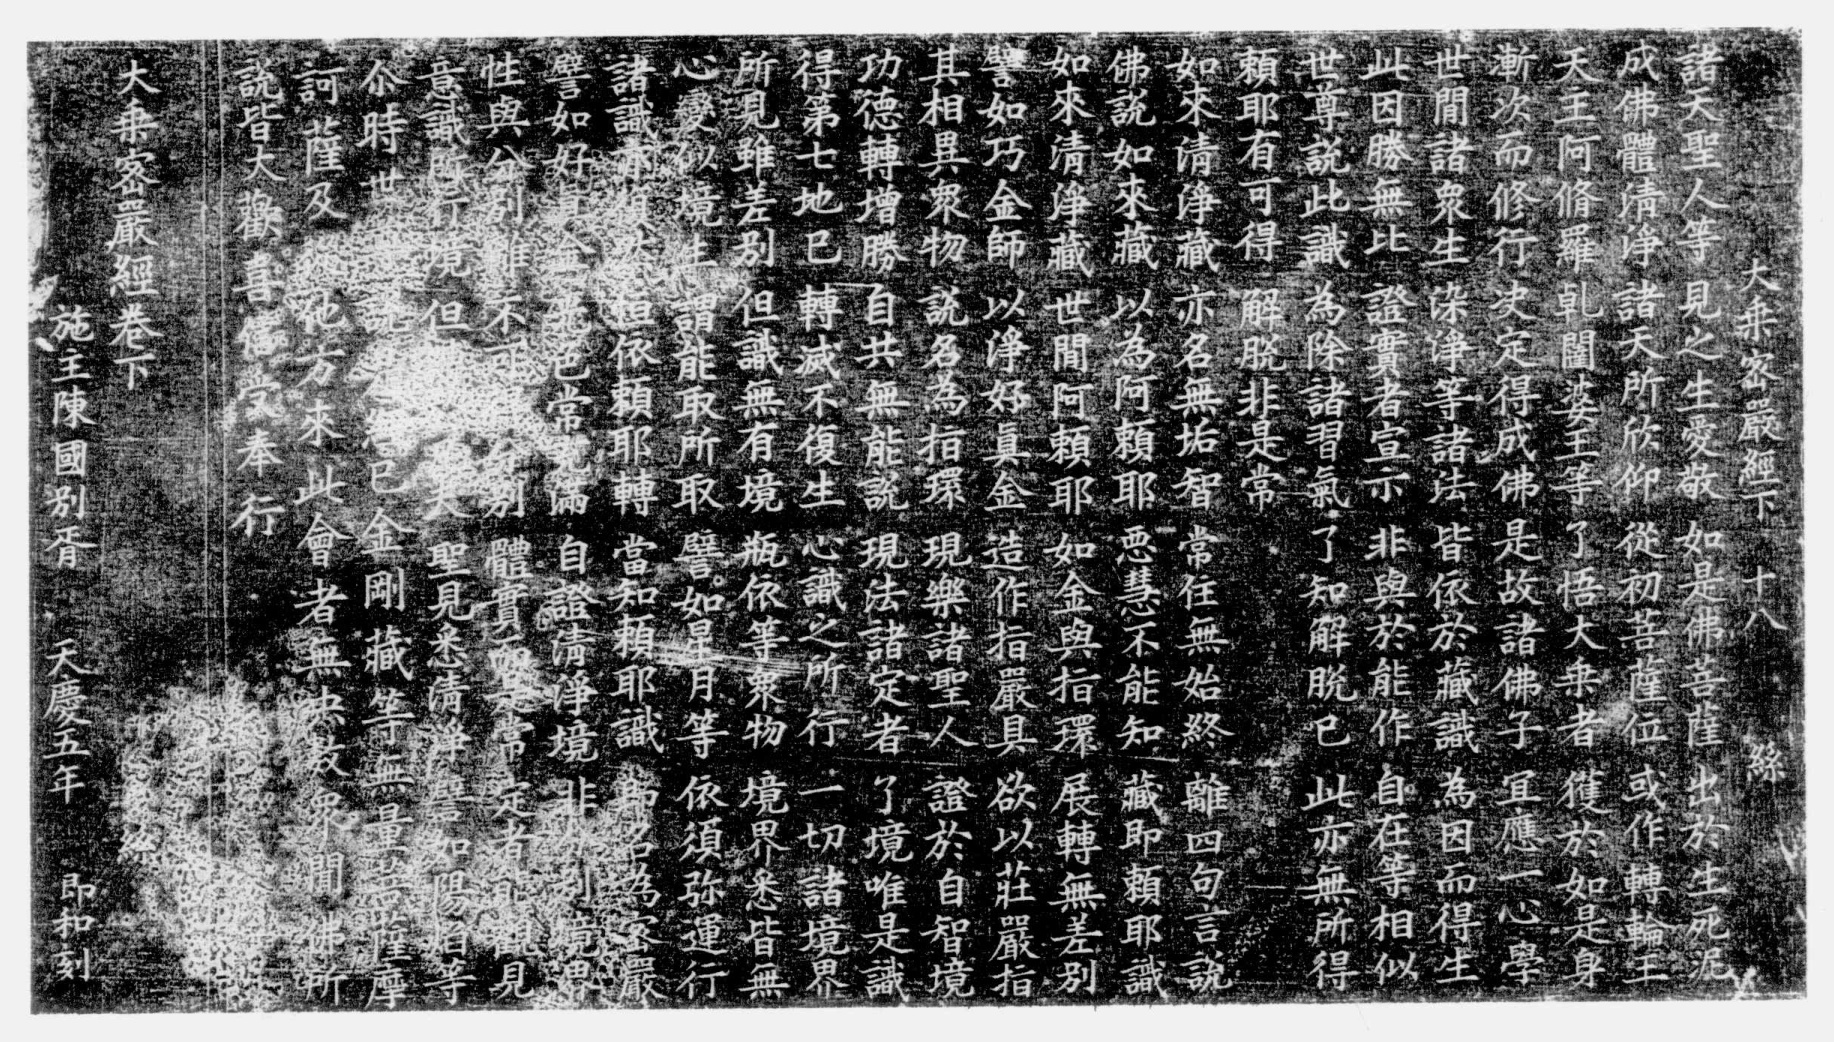 大乗宻嚴經下 十八 絲
諸天聖人等 見之生愛敬 如是佛菩薩 出於生死泥
成佛體清淨 諸天所欣仰 從初菩薩位 或作轉輪王
天主阿脩羅 乹闥婆王等 了悟大乗者 獲於如是身
漸次而修行 决定得成佛 是故諸佛子 冝應一心學
世間諸衆生 染淨等諸法 皆依於藏識 為因而得生
此因勝無比 證實者宣示 非與於能作 自在等相似
世尊説此識 為除諸習氣 了知解脱已 此亦無所得
頼耶有可得 解脱非是常
如來清淨藏 亦名無垢智 常住無始終 離四句言說
佛說如來藏 以為阿頼耶 惡慧不能知 藏即頼耶識
如來清淨藏 世間阿頼耶 如金與指環 展轉無差别
譬如巧金師 以淨好真金 造作指嚴具 欲以莊嚴指
其相異衆物 說名為指環 現樂諸聖人 證於自智境
功德轉增勝 自共無能說 現法諸定者 了境唯是識
得第七地已 轉滅不復生 心識之所行 一切諸境界
所見雖差别 但識無有境 瓶依等衆物 境界悉皆無
心變似境生 謂能取所取 譬如星月等 依須弥運行
諸識 恒依頼耶轉 當知頼耶識 即名為宻嚴
譬如好 常 滿 自證清淨境 非 别境界
性與 别 不 别 體實 常 定者 觀見
意識所行境 但 夫 聖見悉清淨 譬如陽焰等
尒時世 說 已金剛藏等無量菩薩摩
訶薩及 他方來此會者無央數衆聞佛所
說皆大歡喜信受奉行
大乗宻嚴經卷下 絲
施主陳國别胥 天慶五年 即和刻